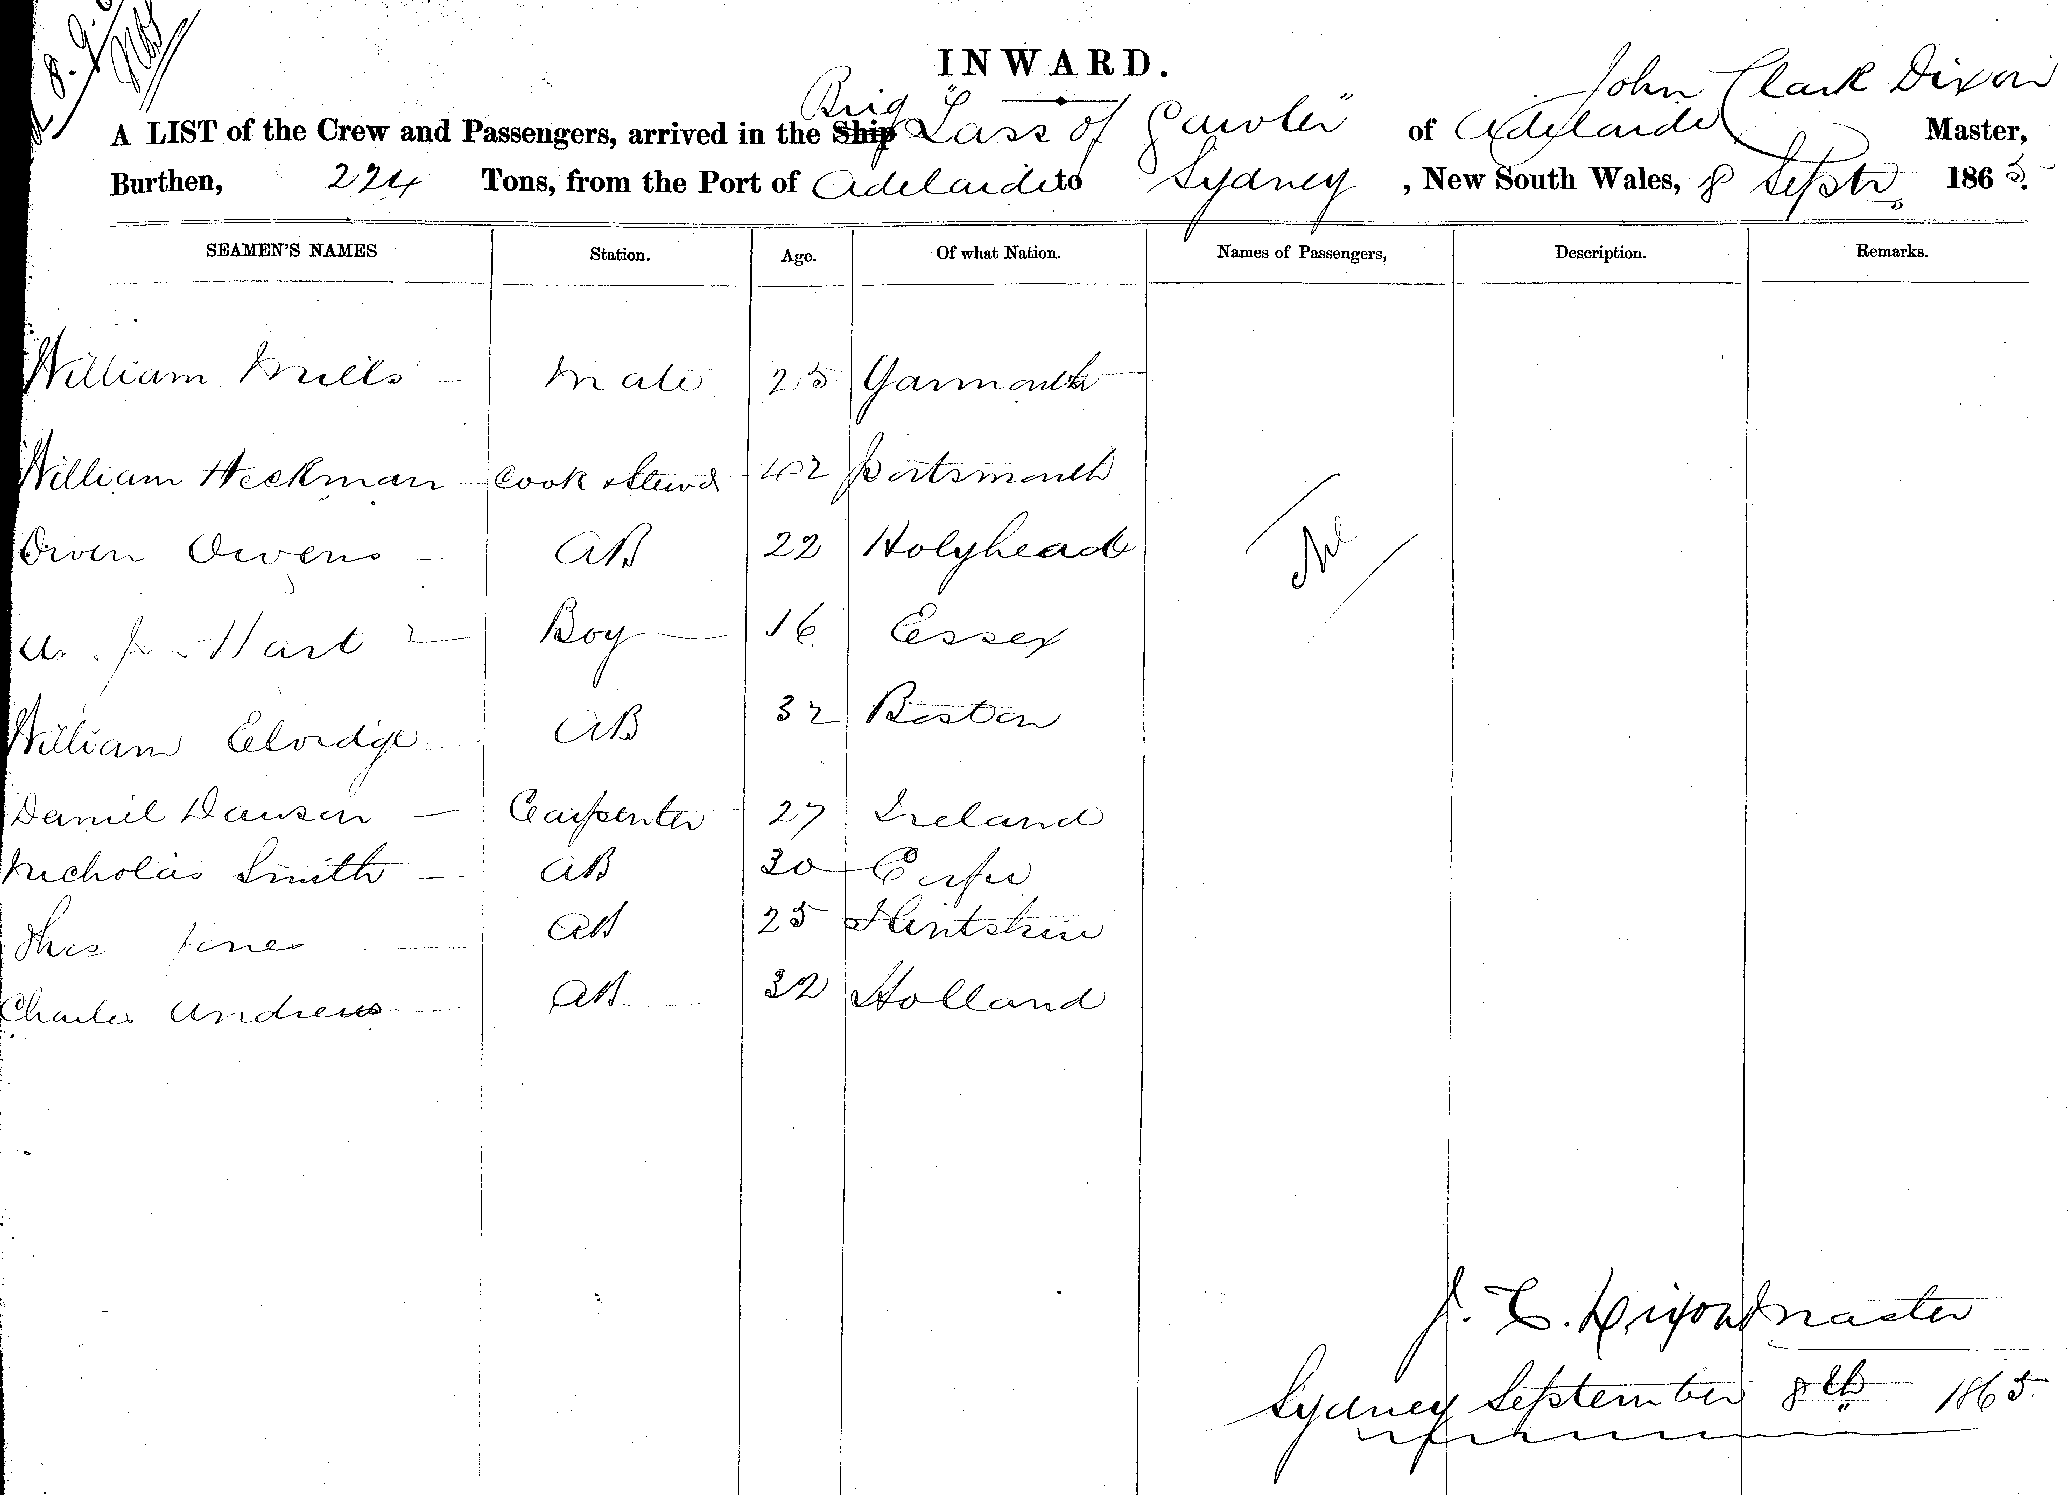 INWARD.
John Clark Dixon
A LIST of the Crew and Passengers, arrived in the Ship Brig "Lass of Gawler" of Adelaide Master,
Burthen, 224 Tons, from the Port of Adelaide to Sydney, New South Wales, 8 Septr 1865.
SEAMEN'S NAMES Station. Age. Of what Nation. Names of Passengers, Description. Remarks.
William Mills Mate 25 Yarmouth
William Heckman Cook & Stewd 42 Portsmouth
Owen Owens AB 22 Holyhead
Nil
Hart Boy 16 Essex
William Elvidge AB 32 Boston
Daniel Dawson Carpenter 27 Ireland
Nicholas Smith AB 30 Corfu
Thos Jones AB 25 Flintshire
Charles Andrews AB 32 Holland
J. C. Dixon Master
Sydney September 8th 1865